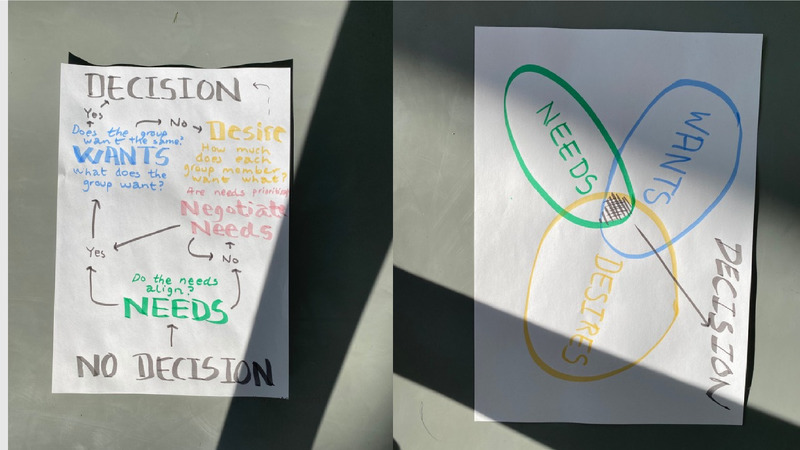 DECISION
Yes
No
Does the group
want the same?
WANTS
what does the
group want?
Desire
How much
does each
group member
want what?
Are needs prioritised
Negotiate
Needs
Yes
No
Do the needs
align?
NEEDS
NO DECISION
NEEDS
WANTS
DESIRES
DECISION